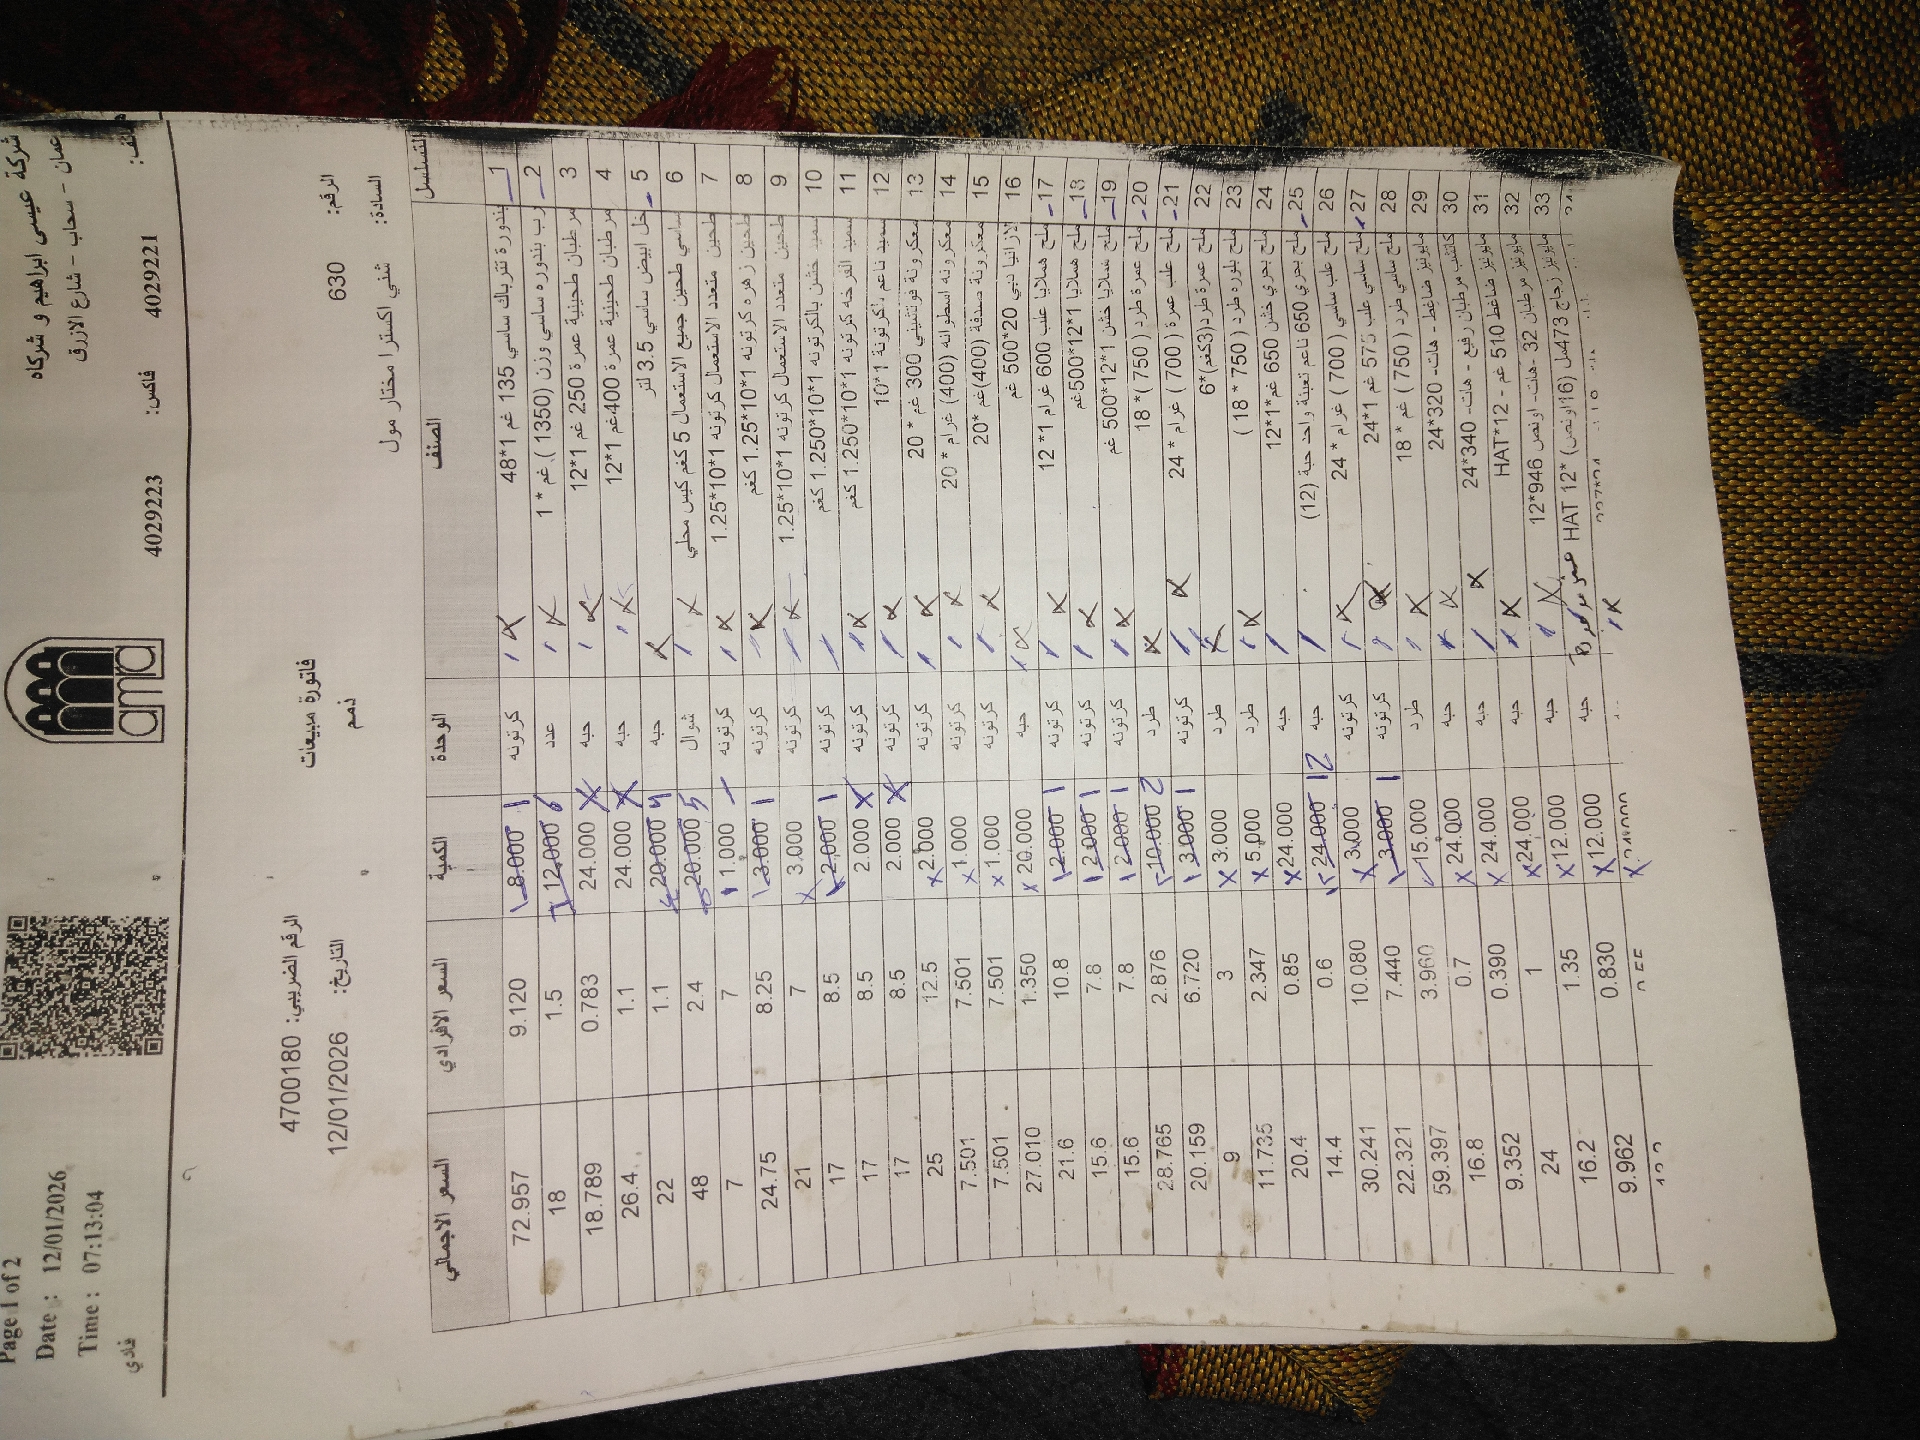 Page 1 of 2
Date : 12/01/2026
Time : 07:13:04
فادي
amra
شركة عيسى ابراهيم و شركاه
عمان - سحاب - شارع الازرق
4029221 فاكس: 4029223
فاتورة مبيعات
ذمم
الرقم: 630
الرقم الضريبي: 4700180
السادة: شني اكسترا مختار مول
التاريخ: 12/01/2026
التسلسل الصنف الوحدة الكمية السعر الافرادي السعر الاجمالي
1 بندورة تتراباك ساسي 135 غم 1*48 كرتونه 8.000 1 9.120 72.957
2 رب بندوره ساسي وزن (1350) غم * 1 عدد 12.000 6 1.5 18
3 مرطبان طحينية عمرة 250 غم 1*12 حبه 24.000 X 0.783 18.789
4 مرطبان طحينية عمرة 400غم 1*12 حبه 24.000 X 1.1 26.4
5 خل ابيض ساسي 3.5 لتر حبه 20.000 4 1.1 22
6 ساسي طحين جميع الاستعمال 5 كغم كيس محلي شوال 20.000 5 2.4 48
7 طحين متعدد الاستعمال كرتونه 1*10*1.25 كرتونه 1.000 7 7
8 طحين زهره كرتونه 1*10*1.25 كغم كرتونه 3.000 1 8.25 24.75
9 طحين متعدد الاستعمال كرتونه 1*10*1.25 كرتونه 3.000 X 7 21
10 سميد خشن بالكرتونه 1*10*1.250 كغم كرتونه 2.000 1 8.5 17
11 سميد الفرخه كرتونه 1*10*1.250 كغم كرتونه 2.000 X 8.5 17
12 سميد ناعم بالكرتونة 1*10 كرتونه 2.000 X 8.5 17
13 معكرونة فوتشيني 300 غم * 20 كرتونه 2.000 X 12.5 25
14 معكرونه اسطوانه (400) غرام * 20 كرتونه 1.000 X 7.501 7.501
15 معكرونة صدفة (400) غم *20 كرتونه 1.000 X 7.501 7.501
16 لازانيا نبي 20*500 غم حبه 20.000 X 1.350 27.010
17 ملح هملايا علب 600 غرام 1*12 كرتونه 2.000 1 10.8 21.6
18 ملح هملايا 1*12*500غم كرتونه 2.000 1 7.8 15.6
19 ملح هملايا خشن 1*12*500 غم كرتونه 2.000 1 7.8 15.6
20 ملح عمرة طرد (750)* 18 طرد 10.000 2 2.876 28.765
21 ملح علب عمرة (700) غرام * 24 كرتونه 3.000 1 6.720 20.159
22 ملح عمرة طرد(3كغم)*6 طرد 3.000 X 3 9
23 ملح بلوره طرد (750 * 18) طرد 5.000 X 2.347 11.735
24 ملح بحري خشن 650 غم*1*12 حبه 24.000 X 0.85 20.4
25 ملح بحري 650 ناعم تعبئة واحد حبة (12) حبه 24.000 12 0.6 14.4
26 ملح علب ساسي (700) غرام * 24 كرتونه 3.000 X 10.080 30.241
27 ملح ساسي علب 575 غم 1*24 كرتونه 3.000 1 7.440 22.321
28 ملح ساسي طرد (750) غم * 18 طرد 15.000 3.960 59.397
29 مايونيز ضاغط - هات- 320*24 حبه 24.000 X 0.7 16.8
30 كاتشب مرطبان رفيع - هات- 340*24 حبه 24.000 X 0.390 9.352
31 مايونيز ضاغط 510 غم - HAT*12 حبه 24.000 X 1 24
32 مايونيز مرطبان 32 -هات- اونص 946*12 حبه 12.000 X 1.35 16.2
33 مايونيز زجاج 473مل (16اونص) *HAT 12 حبه 12.000 X 0.830 9.962